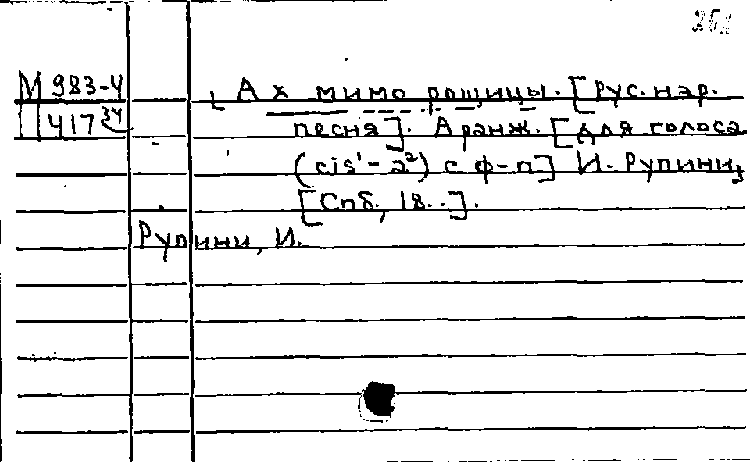 М 983-4
П 417 34
Ах мимо рощицы. [Рус. нар.
песня]. Аранж. [для голоса
(cis¹-a²) с ф-п] И. Рупини,
[Спб, 18..].
Рупини, И.